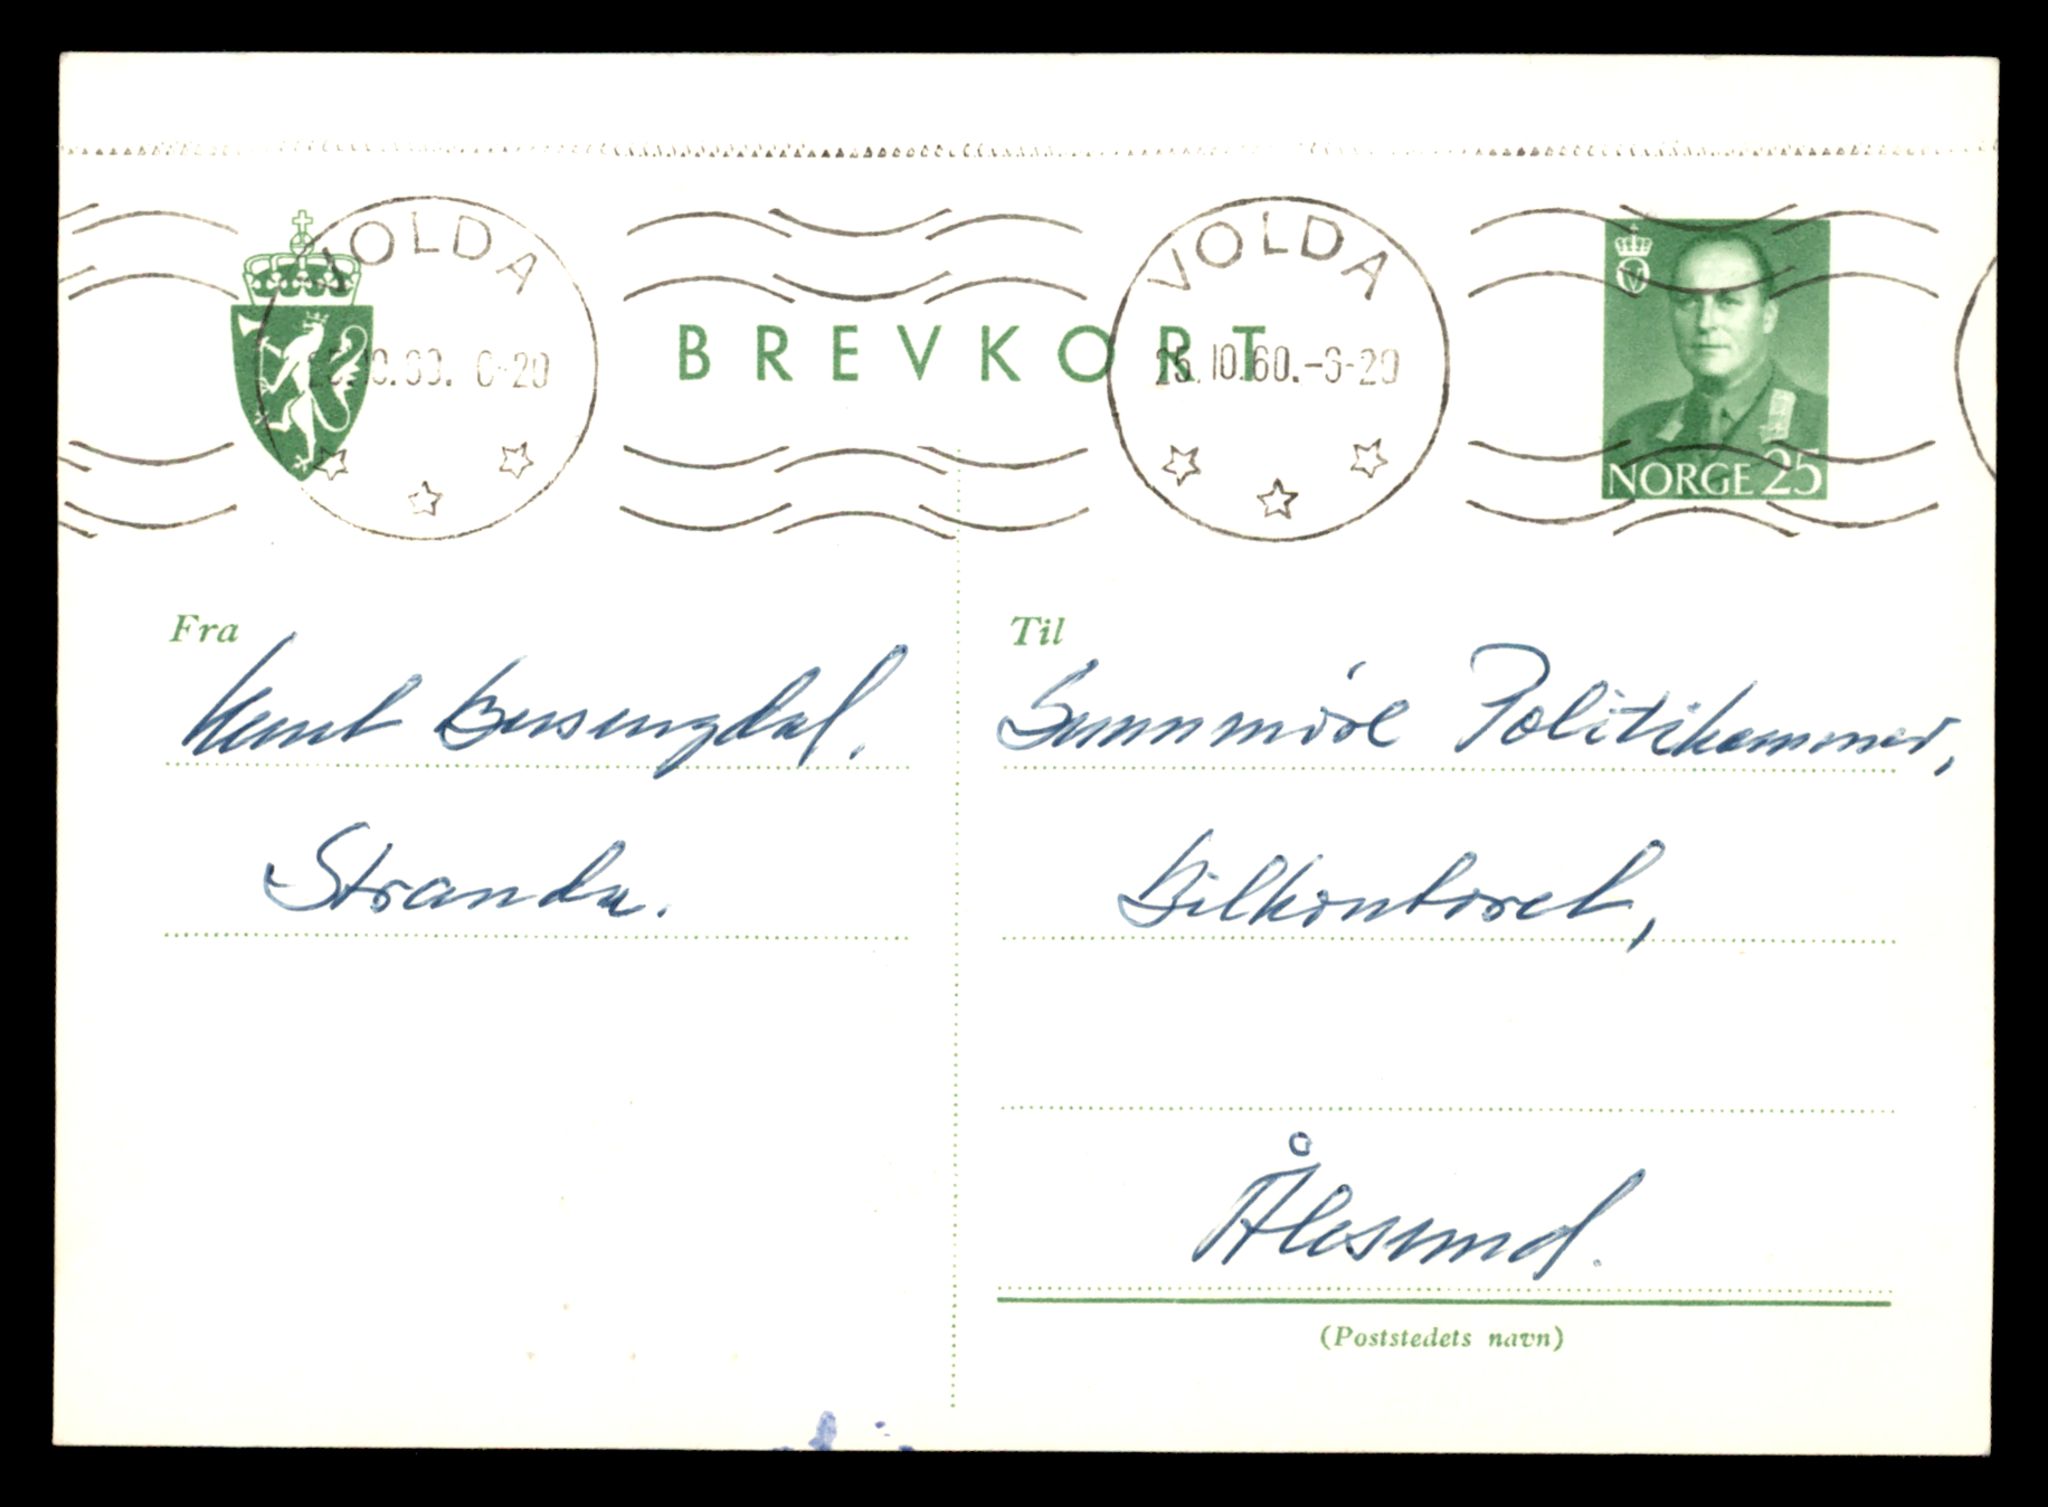 VOLDA
BREVKORT
VOLDA
25.10.60.-6-20
NORGE 25
Fra
Knut
Stranda.
Til
Sunnmøre Politikammer,
Bilkontoret,
Ålesund.
(Poststedets navn)